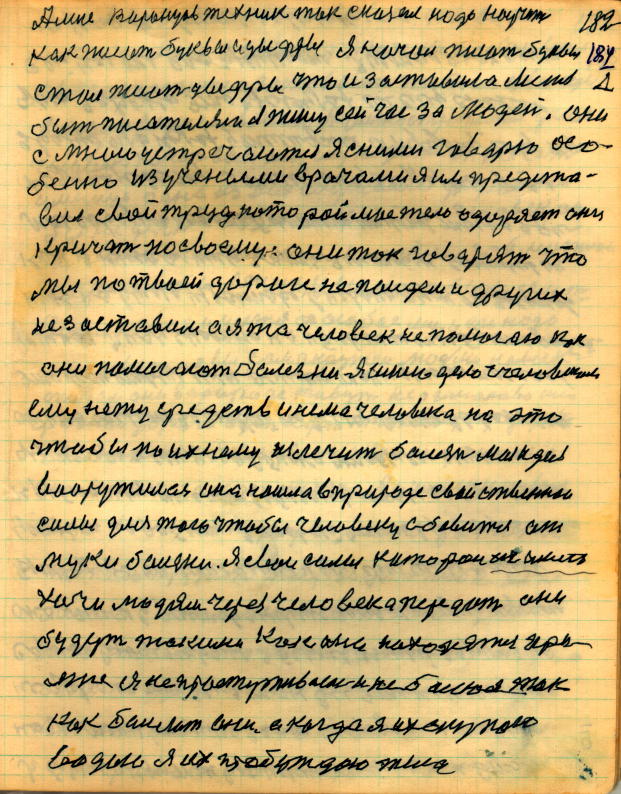 А мне Варанцов техник так сказал надо научит 182
как писат буквы и цыфры я начал писат буквы 182
стал писат цыфры что и заставила меня
быт писателям я пишу сейчас за людей. они
с мною устречаются я с ними говарю осо-
бенно из ученыеми врачами я им предста-
вил свой труд каторой мое тело одиряет они
кричат посвоему: они так говарят что
мы по твоей дороги не пойдем и других
не заставим а я та человек не помогаю как
они помогают болезни я имею дело с человеком
ему нету средств и нема человека на это
чтобы по ихнему излечит болезн мая идея
вооружилася она нашла в природе свойственные
силы для того чтобы человеку сбавится от
муки болязни. Я свои силы каторой
хочу людям через человека передат они
будут такими как они находятся
я не простуживаюся и не болею так
как болеют они. а когда я их скупаю
водою я их пробуждаю тело